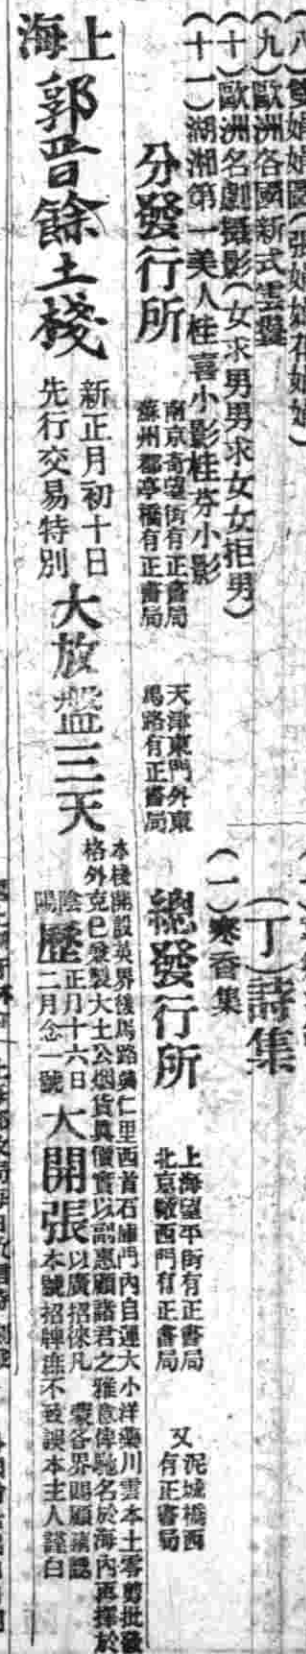 (九)歐洲各國新式
(十)歐洲名劇攝影(女求男男求女女拒男)
(十一)湖湘第一美人桂喜小影桂芬小影
(丁)詩集
(一)寒香集
分發行所
南京奇望街有正書局
蘇州都亭橋有正書局
天津東門外東
馬路有正書局
總發行所
上海望平街有正書局
北京廠西門有正書局
又泥城橋西
有正書局
上海
郭晋餘土棧
新正月初十日
先行交易特別
大放盤三天
本棧開設英界後馬路仁里西首石庫門內自運大小洋藥川雲本土零剪批發
格外克已兼製大土公烟貨真價實以副惠顧諸君之雅意俾馳名於海內再擇於
陰陽歷
正月十六日
二月念一號
大開張
以廣招徠凡蒙各界賜顧請認
本號招牌庶不致誤本主人謹白